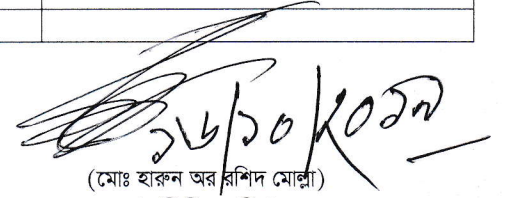 ১৬/১০/২০১৭
(মোঃ হারুন অর রশিদ মোল্লা)